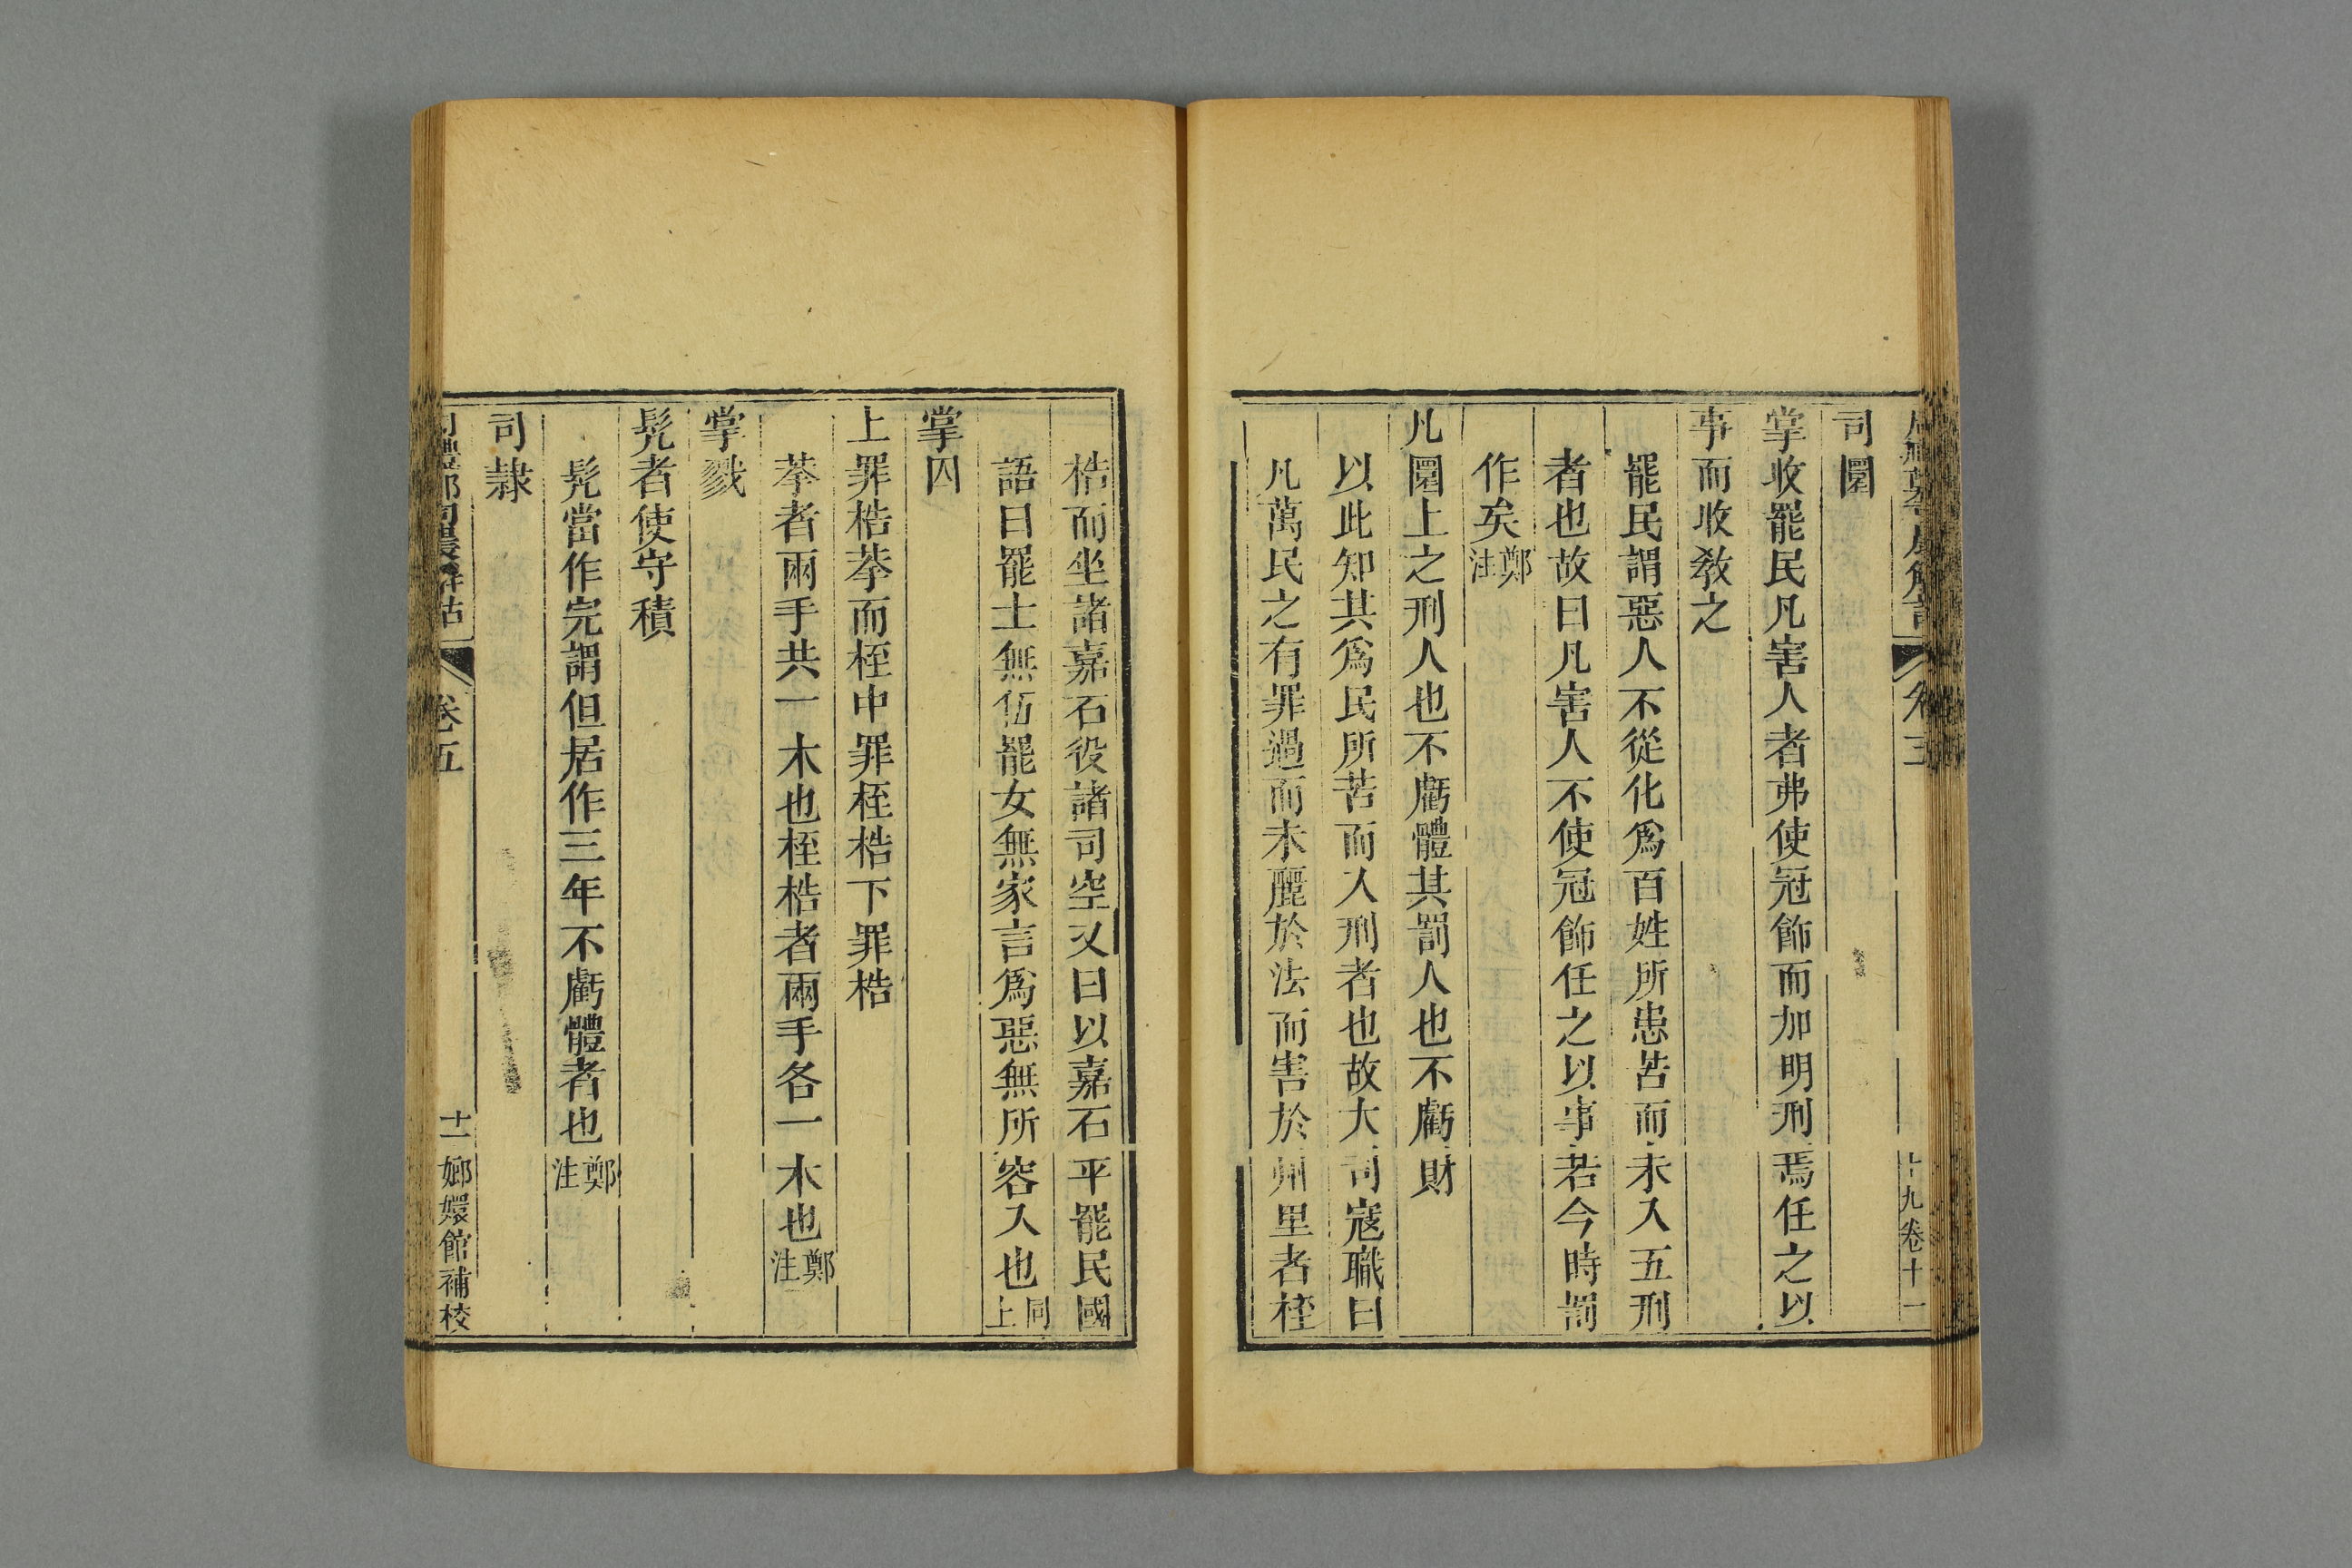 司圜
掌收罷民凡害人者弗使冠飾而加明刑焉任之以
事而收敎之
罷民謂惡人不從化爲百姓所患苦而未入五刑
者也故曰凡害人不使冠飾任之以事若今時罰
作矣鄭注
凡圜土之刑人也不虧體其罰人也不虧財
以此知其爲民所苦而入刑者也故大司寇職曰
凡萬民之有罪過而未麗於法而害於州里者桎
梏而坐諸嘉石役諸司空又曰以嘉石平罷民國
語曰罷士無伍罷女無家言爲惡無所容入也同上
掌囚
上罪梏拲而桎中罪桎梏下罪梏
拲者兩手共一木也桎梏者兩手各一木也鄭注
掌戮
髡者使守積
髡當作完謂但居作三年不虧體者也鄭注
司隷
卷五
十一
嫏嬛館補校